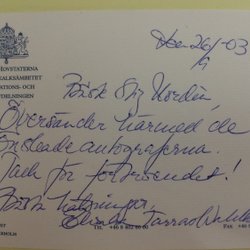 HOVSTATERNA
KALKSÄMBETET
ATIONS- OCH
VDELNINGEN
den 26/1-03
Bäste Stig Nordin,
Översänder härmed de
önskade autograferna.
Tack för förtroendet!
Bästa hälsningar,
Elisabeth Tarras-Wahlberg
TEL +46 8 402 60 00
FAX +46